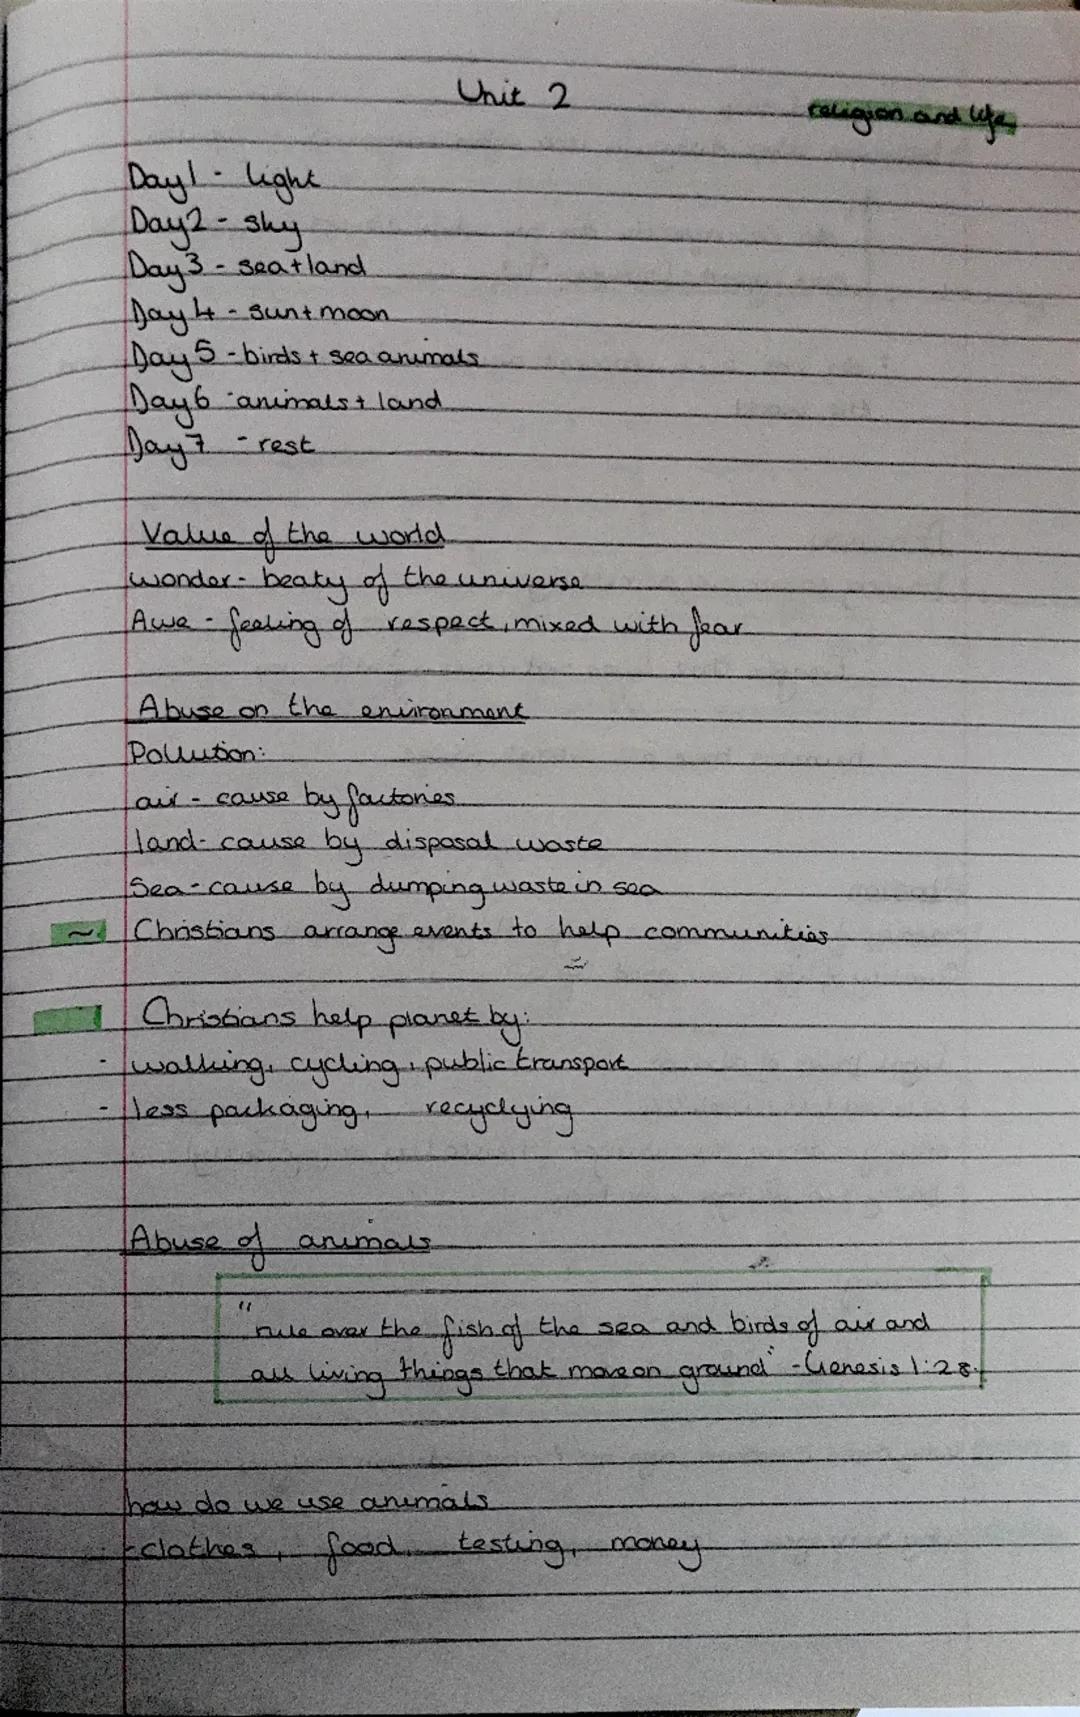 Unit 2
religion and life
Day1 - light
Day2 - sky
Day3 - sea+land
Day4 - sun+moon
Day5 - birds + sea animals
Day6 - animals + land
Day7 - rest
Value of the world
wonder - beaty of the universe
Awe - feeling of respect, mixed with fear
Abuse on the environment
Pollution:
air - cause by factories
land - cause by disposal waste
Sea - cause by dumping waste in sea
~ Christians arrange events to help communities
Christians help planet by:
- walking, cycling, public transport
- less packaging, recyclying
Abuse of animals
"rule over the fish of the sea and birds of air and
all living things that move on ground" - Genesis 1:28.
how do we use animals
- clothes, food, testing, money